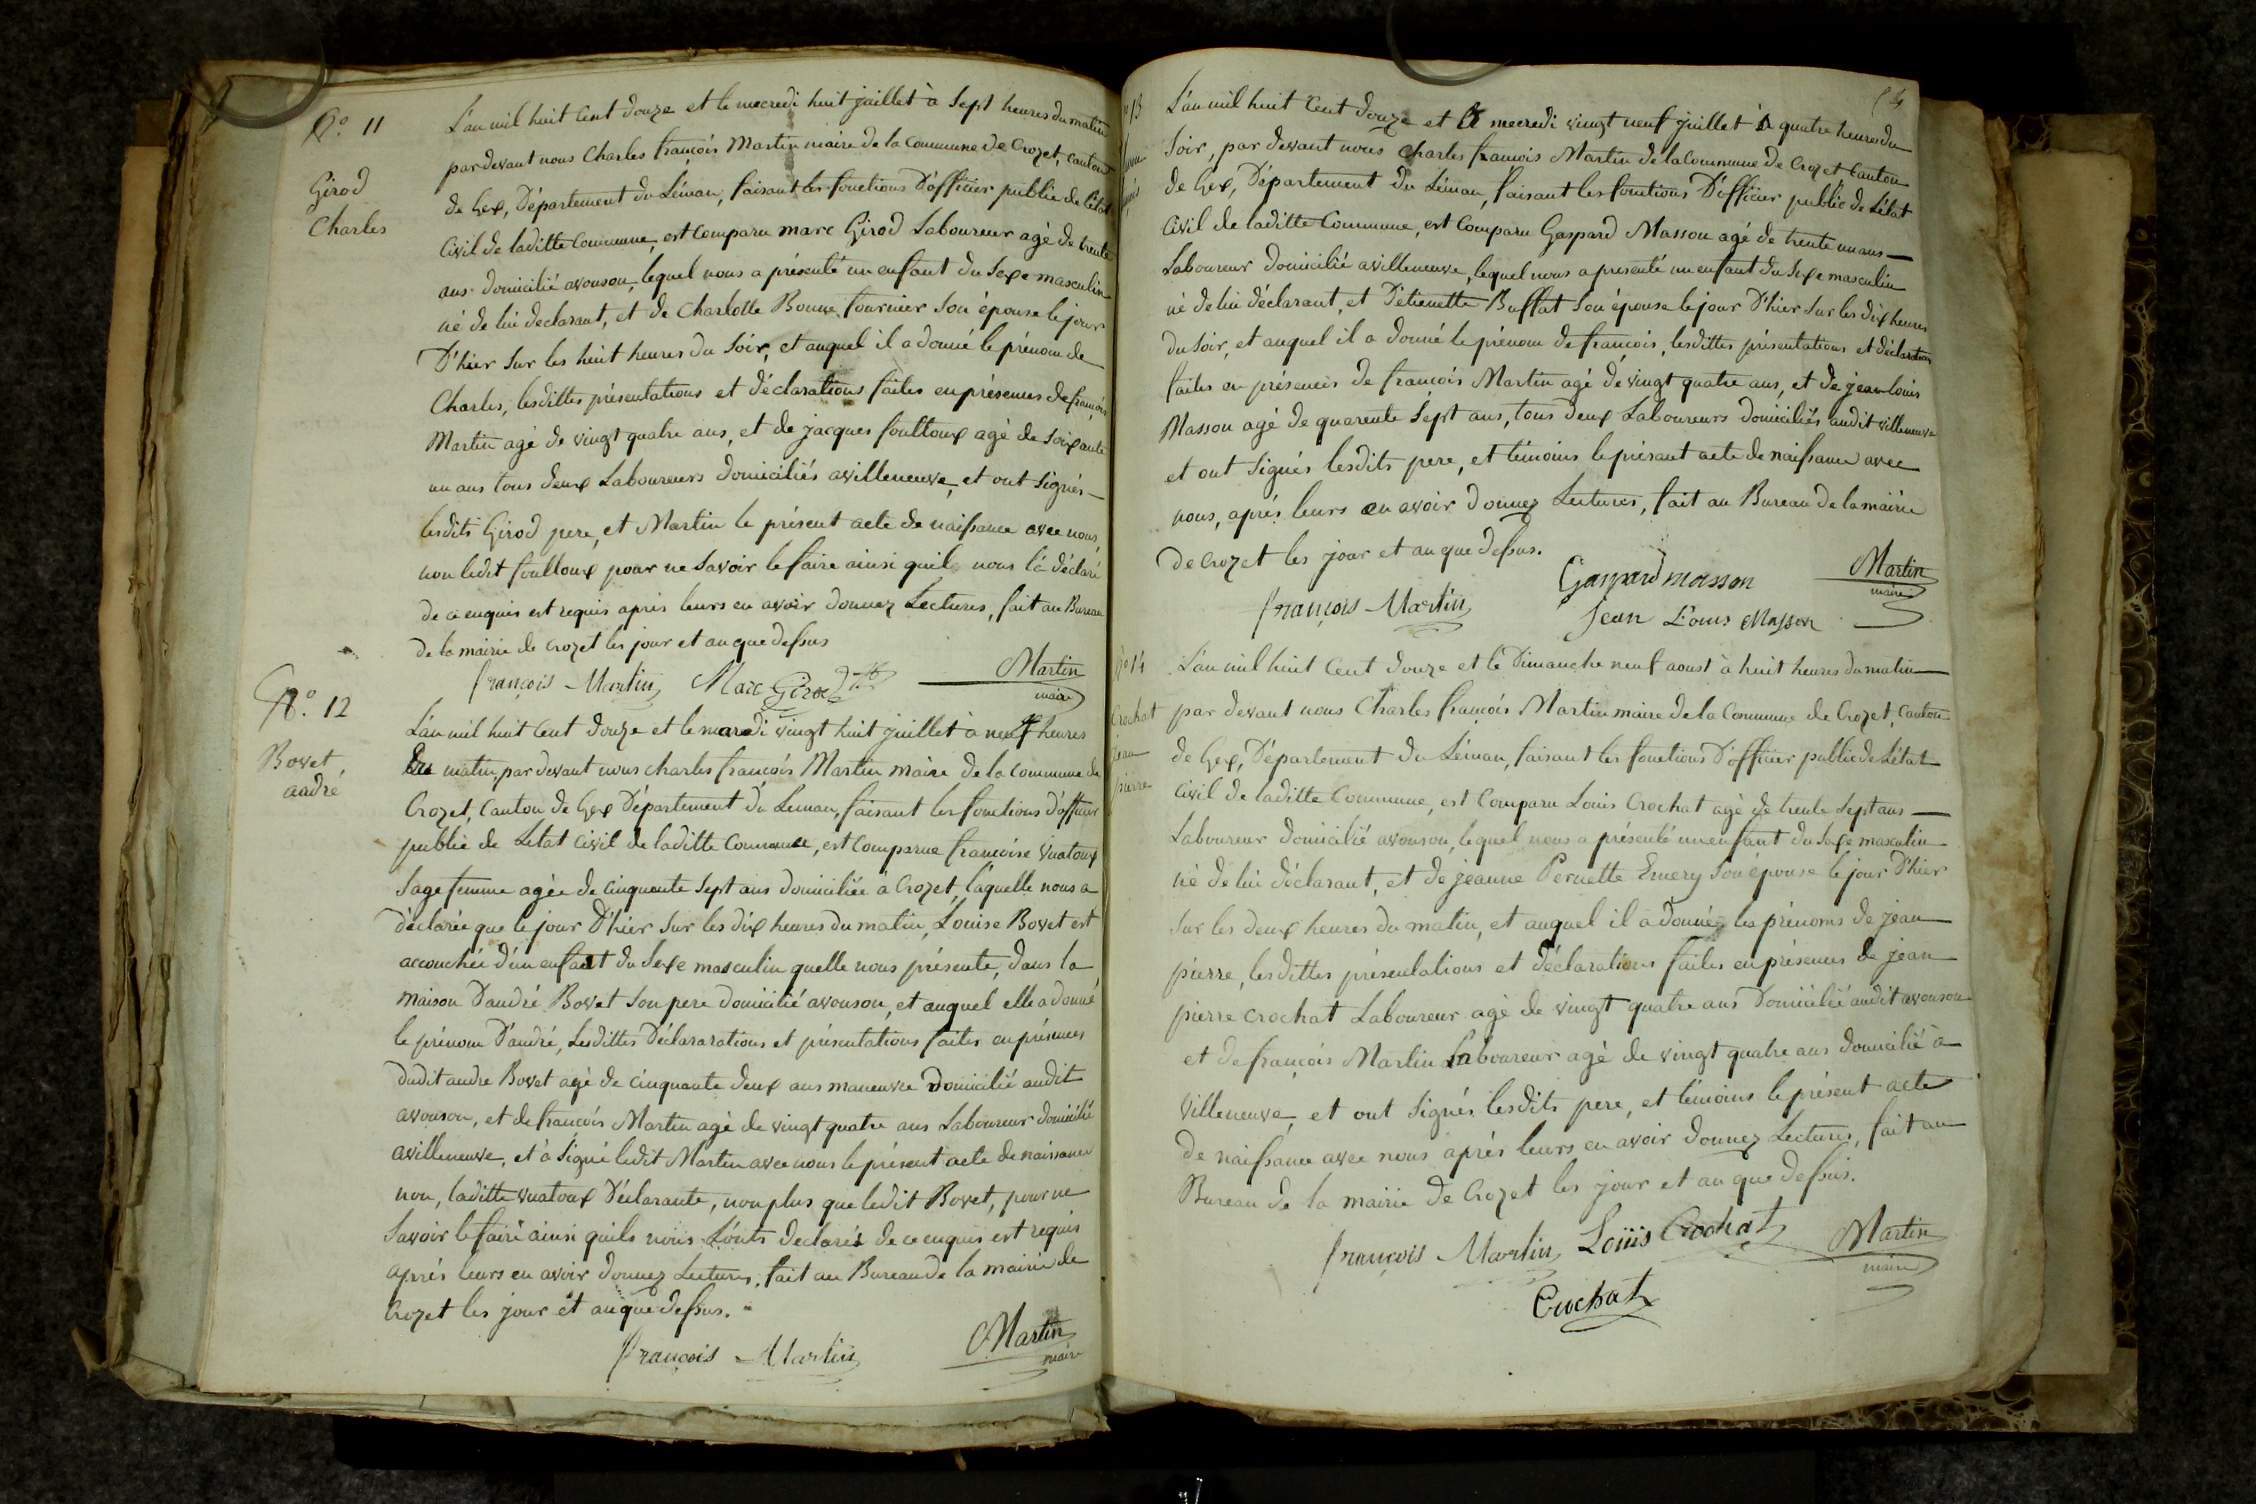 N.° 11
Girod
Charles
L'an mil huit Cent douze et le mecredi huit juillet à Sept heures du matin
par devant nous Charles françois Martin maire de la Commune de Crozet, canton
de Gex, Département du Léman, faisant les fonctions D'officier public de L'état
Civil de laditte Commune, est Comparu marc Girod Laboureur agé de trente
ans domicilié avouson, lequel nous a présenté un enfant du Sexe masculin
né de lui declarant, et de Charlotte Bonne fournier Son épouse le jour
D'hier Sur les huit heures du Soir, et auquel il a donné le prénom de
Charles, lesdittes présentations et déclarations faites en présences de françois
Martin agé de vingt quatre ans, et de jacques foulloux agé de Soixante
un ans tous deux Laboureurs domiciliés avilleneuve, et ont Signés
lesdits Girod pere, et Martin le présent acte de naissance avec nous,
non ledit foulloux pour ne Savoir le faire ainsi quil nous là déclaré
de ce enquis est requis après leurs en avoir donnez Lectures, fait au Bureau
de la mairie de Crozet les jour et an que dessus
françois Martin Marc Girod Martin
maire
N.° 12
Bovet
andré
L'an mil huit Cent douze et le maredi vingt huit juillet à neuf heures
du matin, par devant nous charles françois Martin maire de la commune de
Crozet, Canton de Gex Département du Leman, faisant les fonctions d'officier
public de Letat Civil de laditte Commune, est Comparue francoise vuatoux
Sage femme agée de Cinquante Sept ans domiciliée à Crozet, laquelle nous a
déclarée que le jour D'hier Sur les dix heures du matin, Louise Bovet est
accouchée d'un enfant du Sexe masculin quelle nous présente, dans la
maison D'andré Bovet Son pere domicilié avouson, et auquel elle a donné
le prénom D'andré, Lesdittes Déclararations et présentations faites en présences
dudit andre Bovet agé de Cinquante deux ans maneuvre Domicilié audit
avouson, et de françois Martin agé de vingt quatre ans Laboureur domicilié
avilleneuve, et à Signé ledit Martin avec nous le présent acte de naissance
non, laditte vuatoux Déclarante, non plus que ledit Bovet, pour ne
Savoir le faire ainsi quils nous L'onts declarés de ce enquis est requis
après leurs en avoir donnez Lectures, fait au Bureau de la mairie de
Crozet les jour et an que dessus.
françois Martin Martin
maire
13
L'an mil huit Cent douze et le mecredi vingt neuf juillet à quatre heures du
Soir, par devant nous Charles francois Martin de la Commune de Crozet, Canton
de Gex, Département du Léman, faisant les fonctions D'officier public de L'état
Civil de laditte Commune, est Comparu Gaspard Masson agé de trente un ans
Laboureur domicilié avilleneuve, lequel nous a presenté un enfant du Sexe masculin
né de lui déclarant, et D'étienette Buffat Son épouse le jour D'hier Sur les dix heures
du Soir, et auquel il a donné le prénom de francois, lesdittes présentations et déclarations
faites en présences de françois Martin agé de vingt quatre ans, et de jean louis
Masson agé de quarente Sept ans, tous deux Laboureurs domiciliés audit villeneuve
et ont Signés lesdits pere, et témoins le présant acte de naissance avec
nous, aprés leurs en avoir donnez Lectures, fait au Bureau de la mairie
de Crozet les jour et an que dessus.
Gaspard masson Martin
maire
françois Martin Jean Louis Masson
N° 14
Crochat
jean
pierre
L'an mil huit Cent douze et le Dimanche neuf aoust à huit heures du matin
par devant nous Charles françois Martin maire de la Commune de Crozet, Canton
de Gex, Département du Léman, faisant les fonctions D'officier public de L'état
Civil de laditte Commune, est Comparu Louis Crochat agé de trente Sept ans
Laboureur domicilié avouson, lequel nous a présenté un enfant du Sexe masculin
né de lui déclarant, et de jeanne Pernette Emery Son épouse le jour D'hier
Sur les deux heures du matin, et auquel il a donnéz les prénoms de jean
pierre, lesdittes présentations et déclarations faites en présences de jean
pierre Crochat Laboureur agé de vingt quatre ans Domicilié audit avouson
et de françois Martin Laboureur agé de vingt quatre ans domicilié à
Villeneuve, et ont Signés lesdits pere, et témoins le présent acte
de naissance avec nous aprés leurs en avoir donnez Lectures, fait au
Bureau de la mairie de Crozet les jour et an que dessus.
françois Martin Loüis Crochat Martin
maire
Crochat